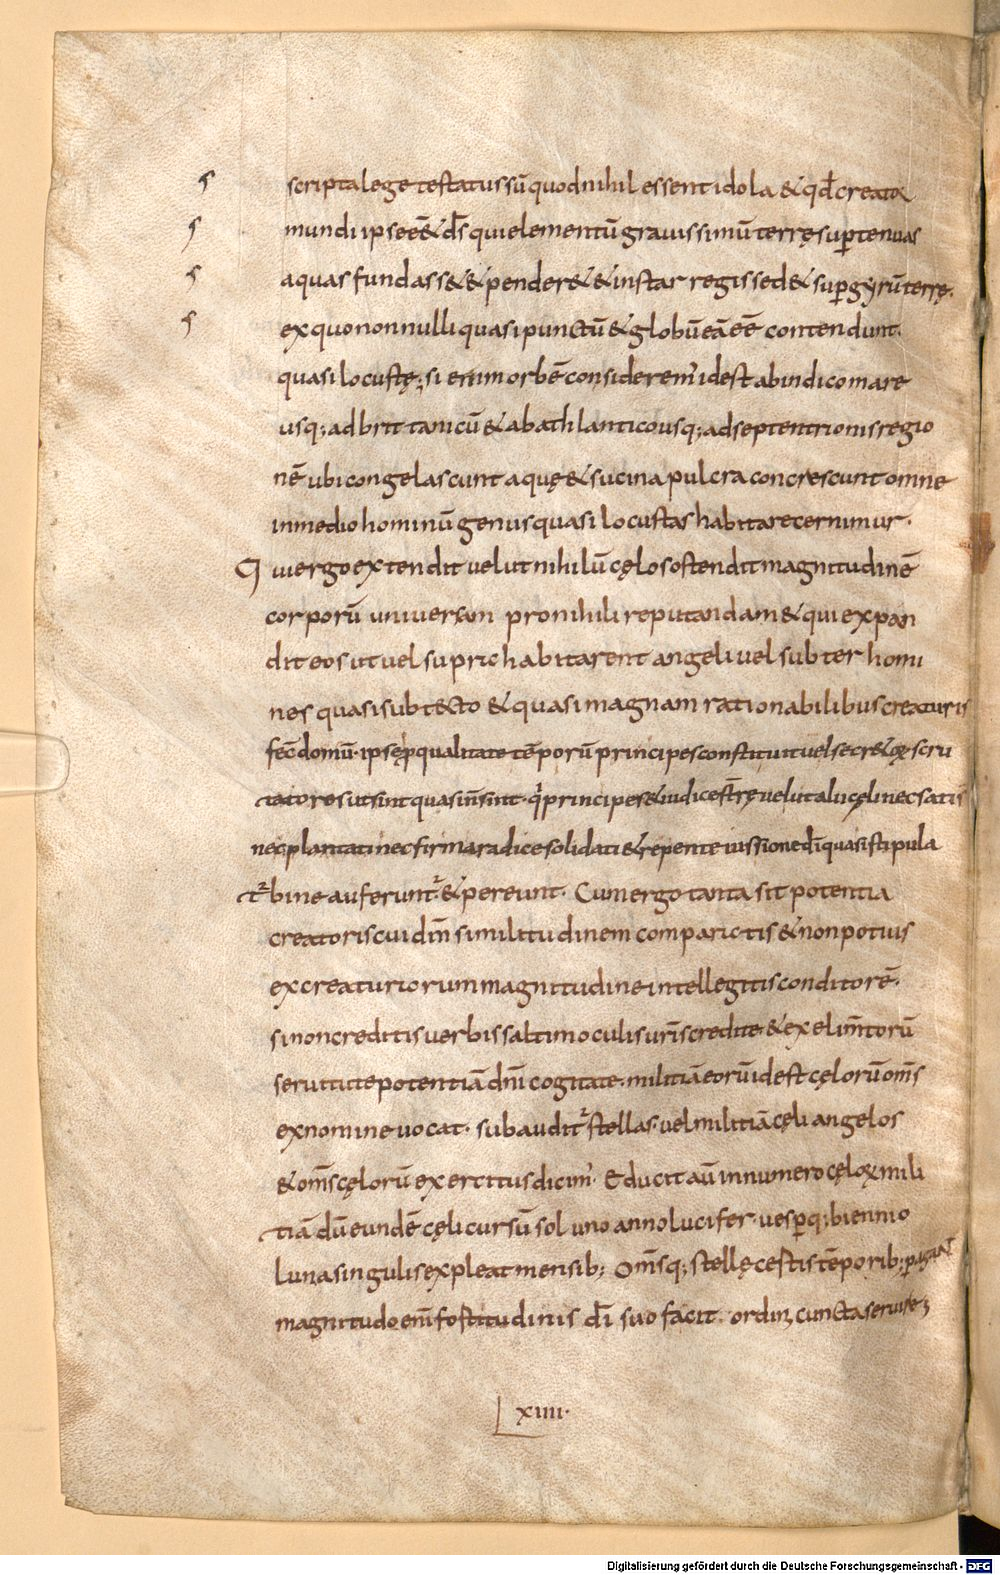 scripta lege testatus sū quod nihil essent idola & qđ creator
mundi ipse eē & dš qui elementū grauissimū terrę sup tenuas
aquas fundass& & pender& & instar regis sed& sup gyrū terrę.
ex quo nonnulli quasi punctū & globū eā eē contendunt.
quasi locustę; si enim orbē consideremꝰ idest ab indico mare
usq; ad brittanicū & ab athlantico usq; ad septentrionis regio
nē ubi congelascunt aquę & sucina pulcra concrescunt omne
in medio hominū genus quasi locustas habitare cernimur.
Qui ergo extendit uelut nihilū cęlos ostendit magnitudinē
corporū uniuersam pro nihili reputandam & qui expan
dit eos ut uel supric habitarent angeli uel subter homi
nes quasi sub tecto & quasi magnam rationabilibus creaturis
fec̄ domū. ipse p qualitate tēporū principes constituit uel secr&oꝝ scru
tatores ut sint quasi n̄ sint. q̇ principes & iudices t̄rę uelut alii cęli nec satis
nec plantati nec firma radice solidati & repente iussione dī quasi stipula
t̉bine auferunt̉ & pereunt. Cum ergo tanta sit potentia
creatoris cui dm̄ similitudinem comparictis & non potius
ex creaturiorum magnitudine intellegitis conditorē.
si non creditis uerbis saltim oculis ur̄is credite & ex elim̄torū
seruitute potentiā dnī cogitate. militiā eorū idest cęlorū om̄s
ex nomine uocat. subaudit̉ stellas. uel militiā cęli angelos
& om̄s cęlorū exercitus dicimꝰ. Educit aū in numero cęloꝝ mili
tiā dū eundē cęli cursū sol uno anno lucifer. uesp q; biennio
Luna singulis expleat mensib; Om̄sq; stellę cestis tēporib; pagant
magnitudo enī fostitudinis dī suo facit. ordin cuncta seruire;
Lxiiii.
Digitalisierung gefördert durch die Deutsche Forschungsgemeinschaft - DFG